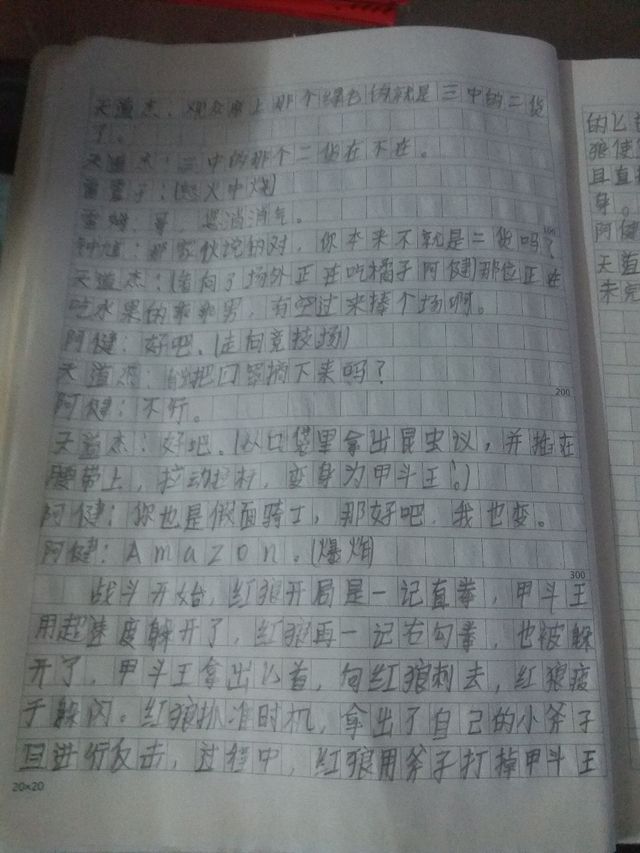 天道杰：观众席上那个绿色的就是三中的二货
了。
天道杰：三中的那个二货在不在。
雷震子：(怒火中烧)
雷姆：哥，您消消气。
钟馗：那家伙说的对，你本来不就是二货吗？
天道杰：(看向了场外正在吃橘子阿健)那位正在
吃水果的乖乖男，有空过来捧个场啊。
阿健：好吧。(走向竞技场)
天道杰：能把口罩摘下来吗？
200
阿健：不行。
天道杰：好吧。(从口袋里拿出昆虫仪，并插在
腰带上，拉动拉杆，变身为甲斗王。)
阿健：你也是假面骑士，那好吧，我也变。
阿健：Amazon。(爆炸)
300
战斗开始，红狼开局是一记直拳，甲斗王
用超速度躲开了，红狼再一记右勾拳，也被躲
开了，甲斗王拿出匕首，向红狼刺去，红狼疲
于躲闪。红狼抓准时机，拿出了自己的小斧子
且进行反击，过程中，红狼用斧子打掉甲斗王
20×20
的匕首
狼使
且直
阿健
天道
未完